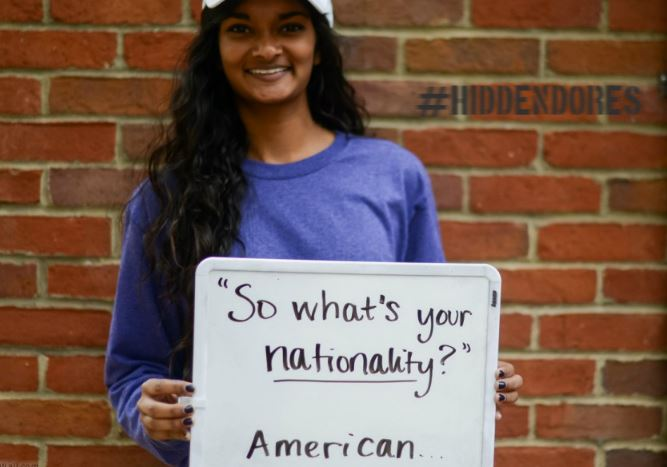 #HIDDENDORES
"So what's your
nationality?"
American...